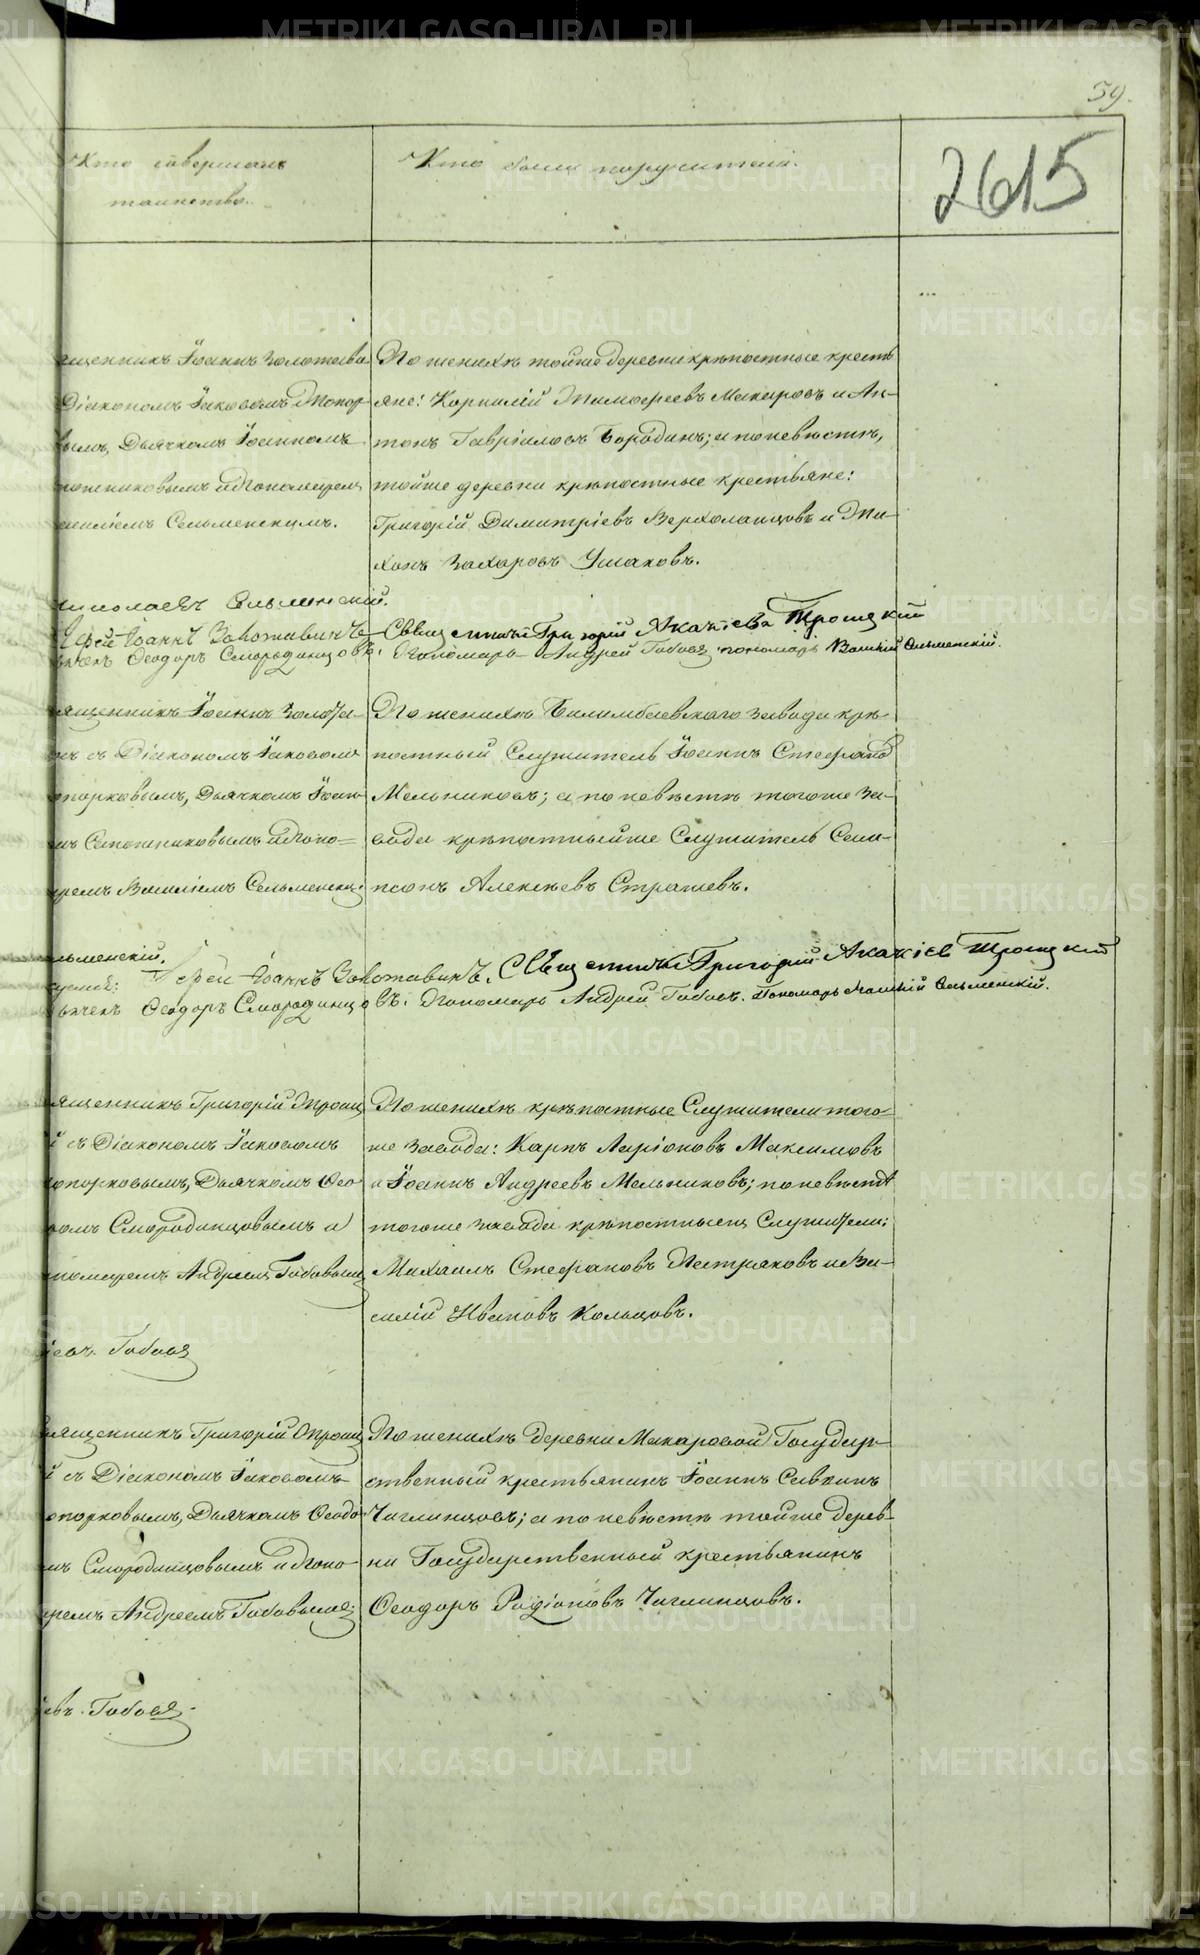 59.
Кто совершалъ
таинство.
Кто были поручители.
2615
ященникъ Іоаннъ Золотави
Діакономъ Іаковомъ Топор-
вымъ, Дьячкомъ Іоанномъ
пожниковымъ и Пономарем
силіемъ Сельменскимъ.
По женихѣ тойже деревни крѣпостные кресть
яне: Корнилій Тимофеевъ Макаровъ и Ан-
тонъ Гавріиловъ Бородинъ; а по невѣстѣ,
тойже деревни крѣпостные крестьяне:
Григорій Димитріевъ Верхоланцовъ и Ти-
хонъ Захаровъ Ушаковъ.
Николаевъ Сельменскій.
Іерей Іоаннъ Золотавинъ Священникъ Григорій Акакіевъ Троицкій
ячекъ Ѳеодоръ Смородинцовъ: Пономарь Андрей Бабовъ пономарь Василій Сельменскій.
ященникъ Іоаннъ Золота-
нъ съ Діакономъ Іаковомъ
опорковымъ, Дьячкомъ Іоан-
мъ Сапожниковымъ и Поно=
аремъ Василіемъ Сельменски.
По женихѣ Билимбаевскаго Завода крѣ-
постный Служитель Іоаннъ Стефановъ
Мельниковъ; а по невѣстѣ тогоже За-
вода крѣпостныйже Служитель Сам-
псонъ Алексѣевъ Страшевъ.
льменскій.
Іерей Іоаннъ Золотавинъ. Священникъ Григорій Акакіев Троицкій
ьячекъ Ѳеодоръ Смородинцовъ: Пономарь Андрей Бабовъ. Пономарь Василій Сельменскій.
ященникъ Григорій Троиц
й съ Діакономъ Іаковомъ
опорковымъ, Дьячкомъ Ѳео-
ромъ Смородинцовымъ и
номаремъ Андреем Бабовым
По женихѣ крѣпостные Служители того-
же Завода: Карпъ Ларіоновъ Максимовъ
и Іоаннъ Андреевъ Мельниковъ; по невѣстѣ
тогоже завода крѣпостныеж Служители:
Михаилъ Стефановъ Пестряковъ и Ва-
силій Ивановъ Кольцовъ.
іевъ Бабовъ
вященникъ Григорій Троиц
й съ Діакономъ Іаковомъ
опорковымъ, Дьячкомъ Ѳеодо-
мъ Смородинцовымъ и Поно-
аремъ Андреемъ Бабовымъ.
По женихѣ Деревни Макаровой Государ-
ственный крестьянинъ Іоаннъ Саввинъ
Чиглинцовъ; а по невѣстѣ тойже дерев-
ни Государственный крестьянинъ
Ѳеодоръ Родіоновъ Чиглинцовъ.
евъ. Бабовъ.
METRIKI.GASO-URAL.RU